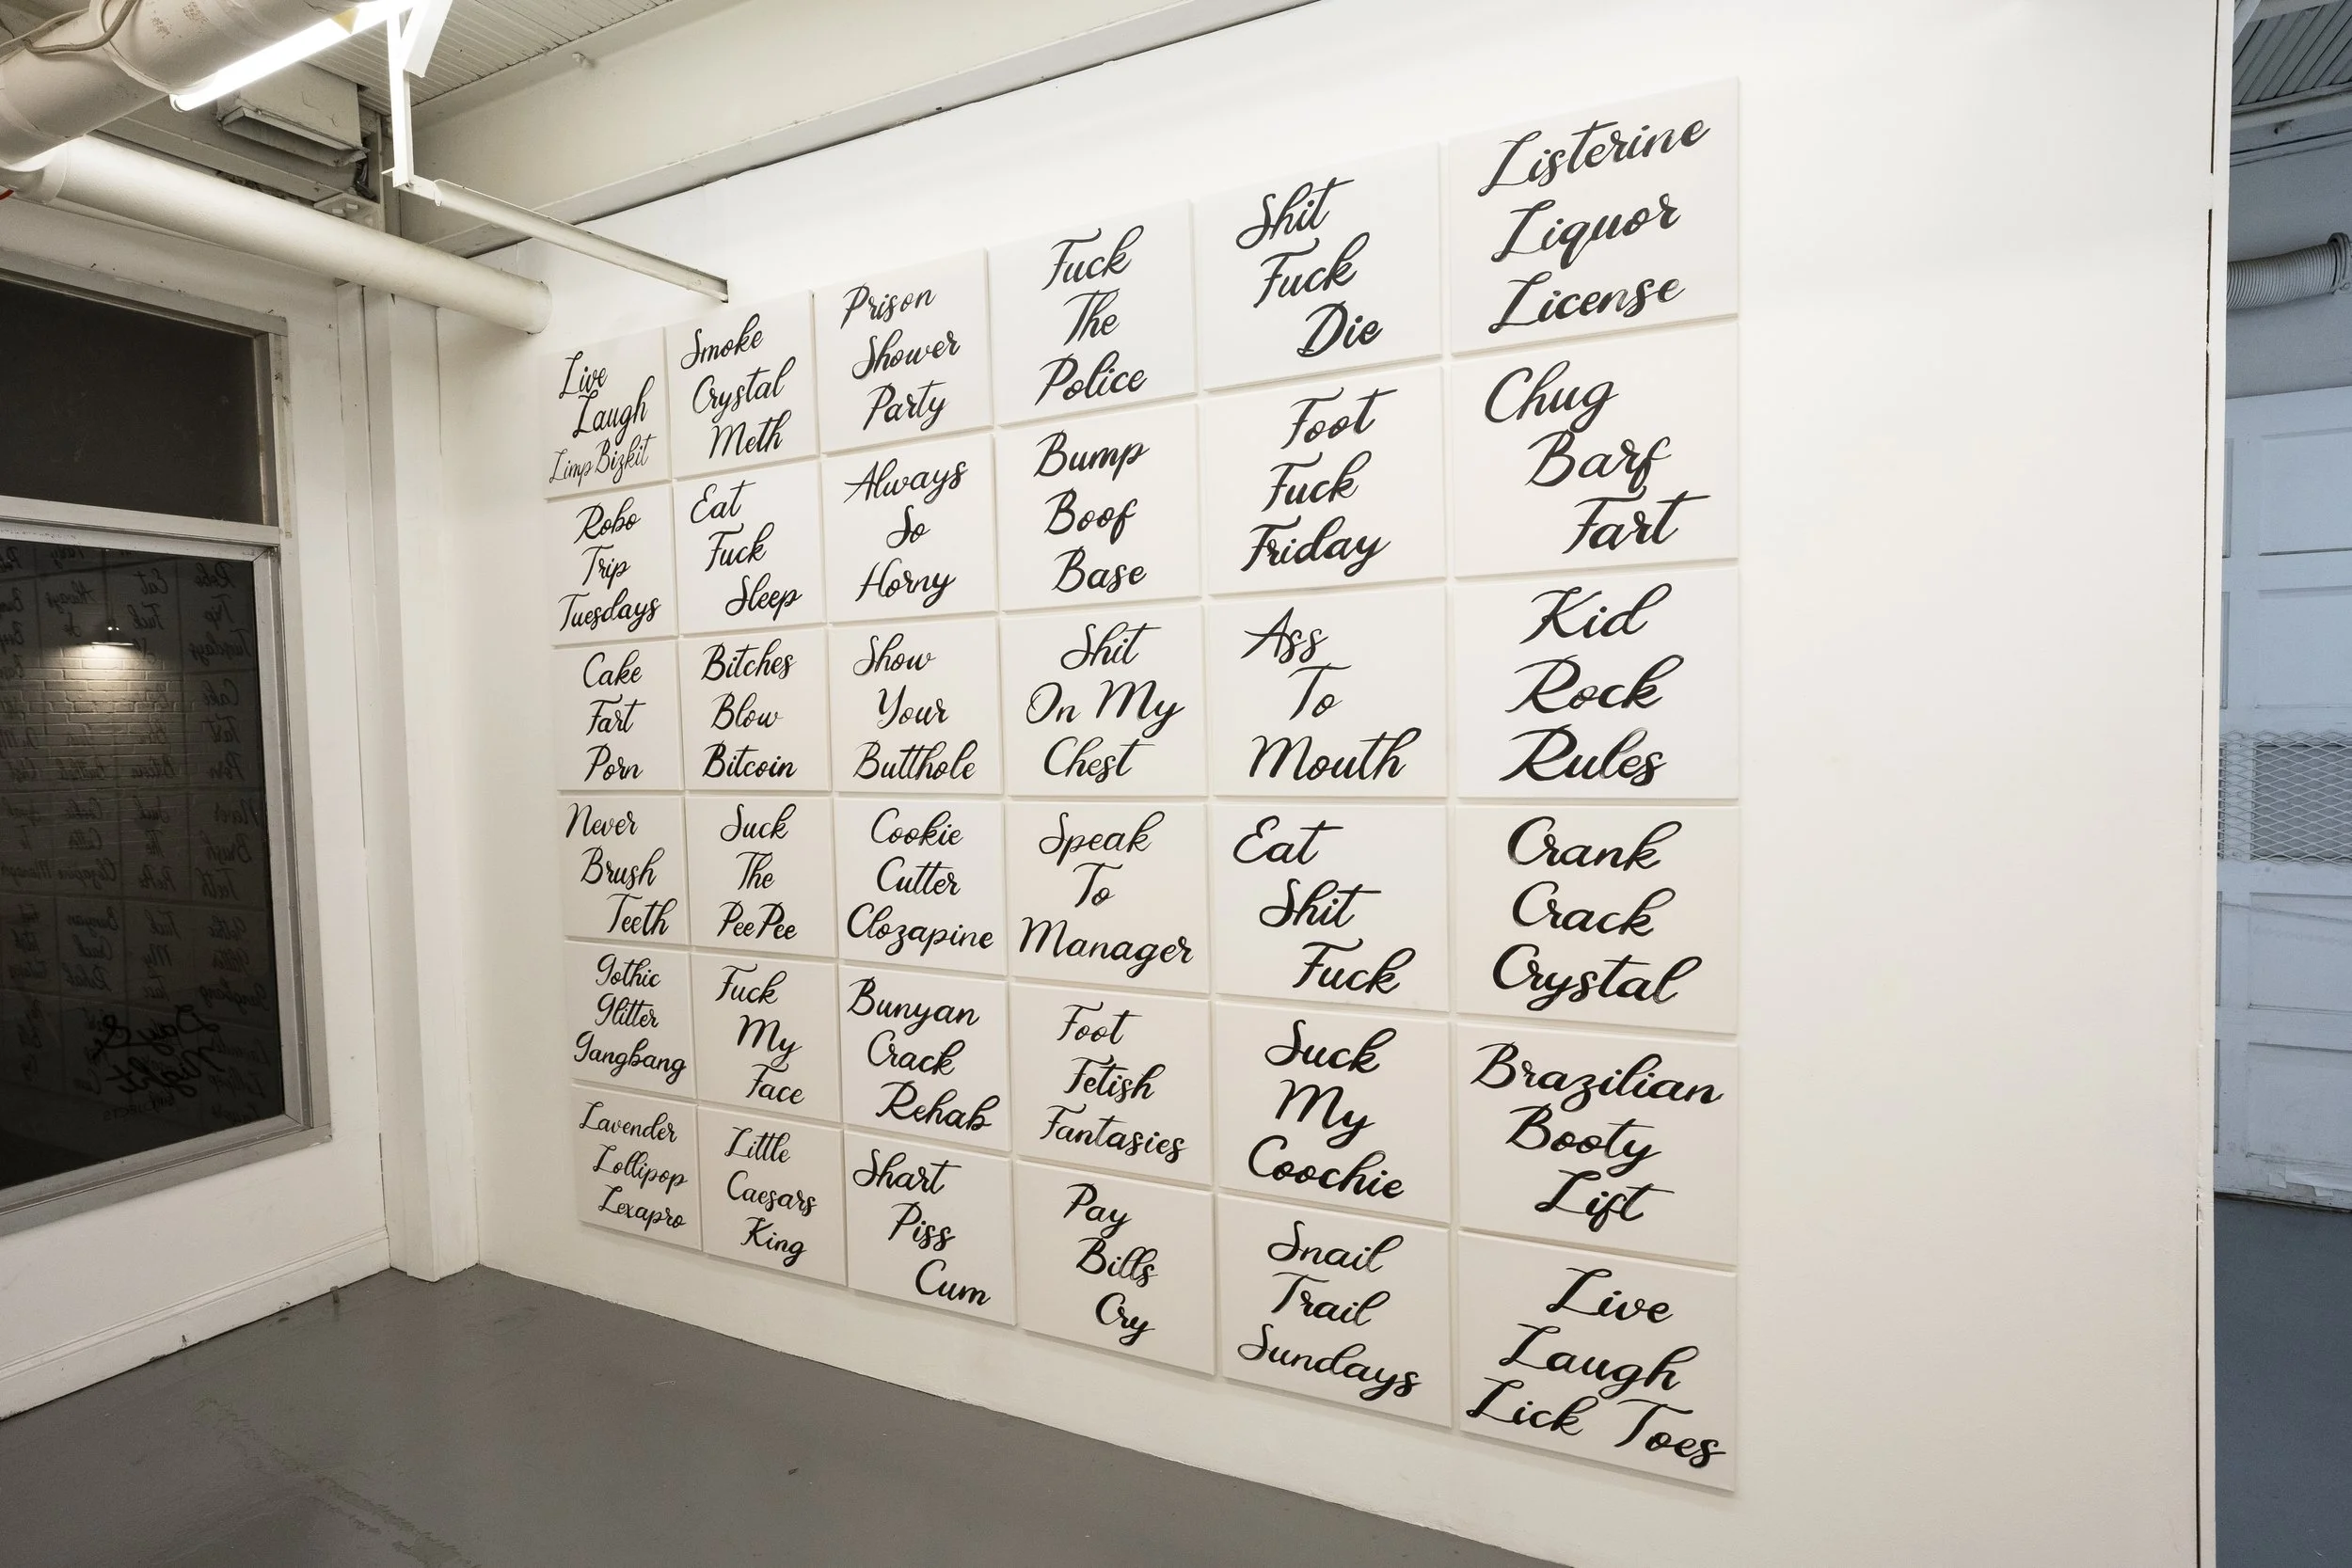 Live
Laugh
Limp Bizkit
Smoke
Crystal
Meth
Prison
Shower
Party
Fuck
The
Police
Shit
Fuck
Die
Listerine
Liquor
License
Robo
Trip
Tuesdays
Eat
Fuck
Sleep
Always
So
Horny
Bump
Boof
Base
Foot
Fuck
Friday
Chug
Barf
Fart
Cake
Fart
Porn
Bitches
Blow
Bitcoin
Show
Your
Butthole
Shit
On My
Chest
Ass
To
Mouth
Kid
Rock
Rules
Never
Brush
Teeth
Suck
The
PeePee
Cookie
Cutter
Clozapine
Speak
To
Manager
Eat
Shit
Fuck
Crank
Crack
Crystal
Gothic
Glitter
Gangbang
Fuck
My
Face
Bunyan
Crack
Rehab
Foot
Fetish
Fantasies
Suck
My
Coochie
Brazilian
Booty
Lift
Lavender
Lollipop
Lexapro
Little
Caesars
King
Shart
Piss
Cum
Pay
Bills
Cry
Snail
Trail
Sundays
Live
Laugh
Lick Toes